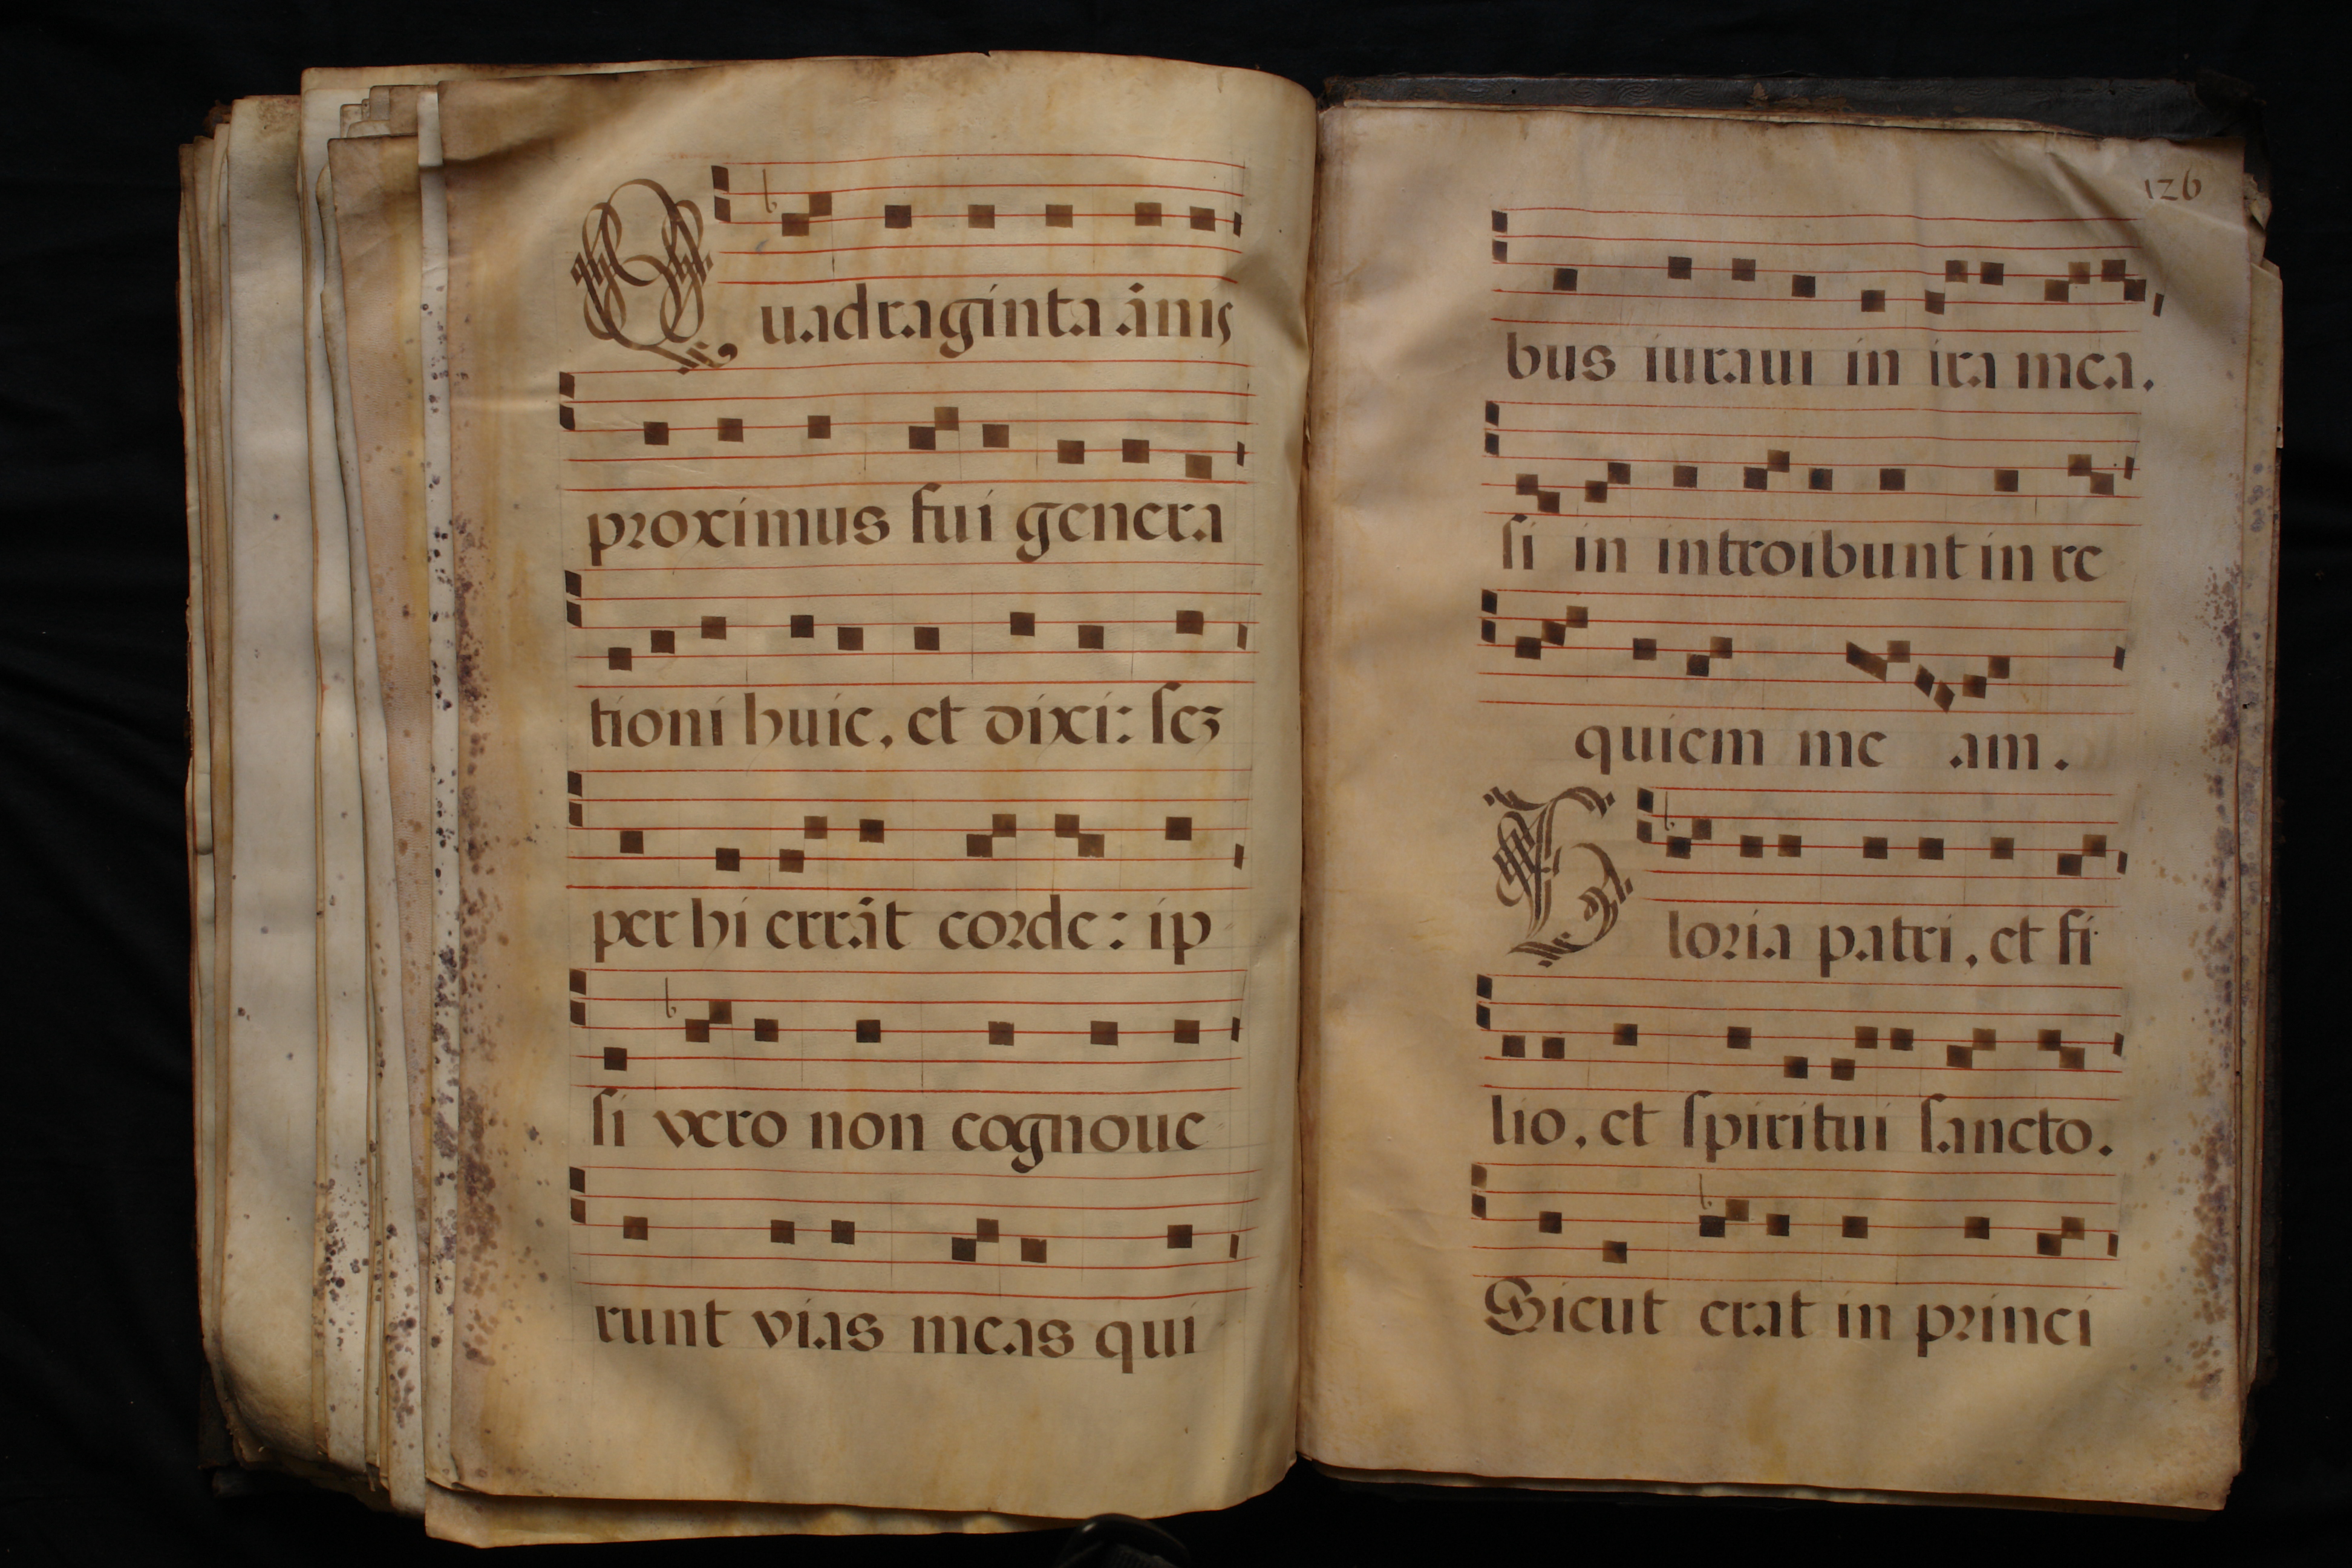 Quadraginta ānis
proximus fui genera
tioni huic, et dixi: sez
per hi errāt corde: ip
si vero non cognoue
runt vias meas qui
126
bus iuraui in ira mea.
si in introibunt in re
quiem me am.
Gloria patri, et fi
lio, et spiritui sancto.
Sicut erat in princi